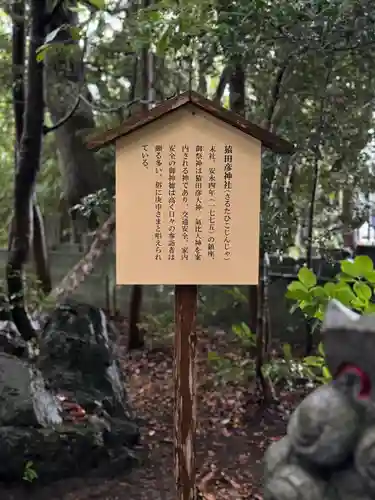 猿田彦神社（さるたひこじんじゃ）
末社、安永四年（一七七五）の鎮座、
御祭神は猿田彦大神　気比大神を案
内される神であり、交通安全、家内
安全の御神徳は高く日々の参詣者は
頗る多い。俗に庚申さまと唱えられ
ている。